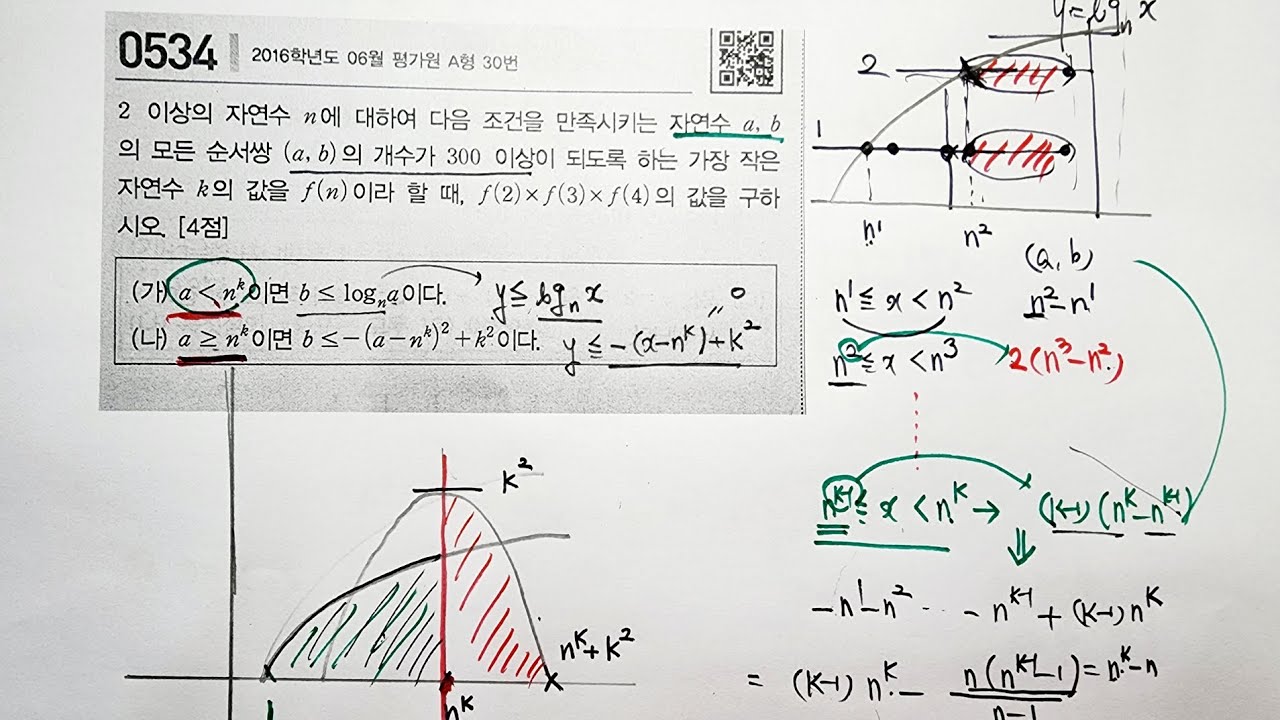 0534 2016학년도 06월 평가원 A형 30번
2 이상의 자연수 n에 대하여 다음 조건을 만족시키는 자연수 a, b
의 모든 순서쌍 (a, b)의 개수가 300 이상이 되도록 하는 가장 작은
자연수 k의 값을 f(n)이라 할 때, f(2)×f(3)×f(4)의 값을 구하
시오. [4점]
(가) a < n^k이면 b ≤ log_n a이다. y ≦ log_n x
(나) a ≥ n^k이면 b ≤ -(a-n^k)^2+k^2이다. y ≦ -(x-n^k)+k^2
k^2
n^k+k^2
1
n^k
y=log_n x
2
1
n^1 n^2
(a, b)
n^1 ≦ x < n^2 n^2-n^1
n^2 ≦ x < n^3 2(n^3-n^2)
n^{k-1} ≦ x < n^k → (k-1)(n^k-n^{k-1})
⇓
-n^1-n^2 ... -n^{k-1}+(k-1)n^k
= (k-1)n^k - n(n^{k-1}-1)/(n-1) = n^k-n